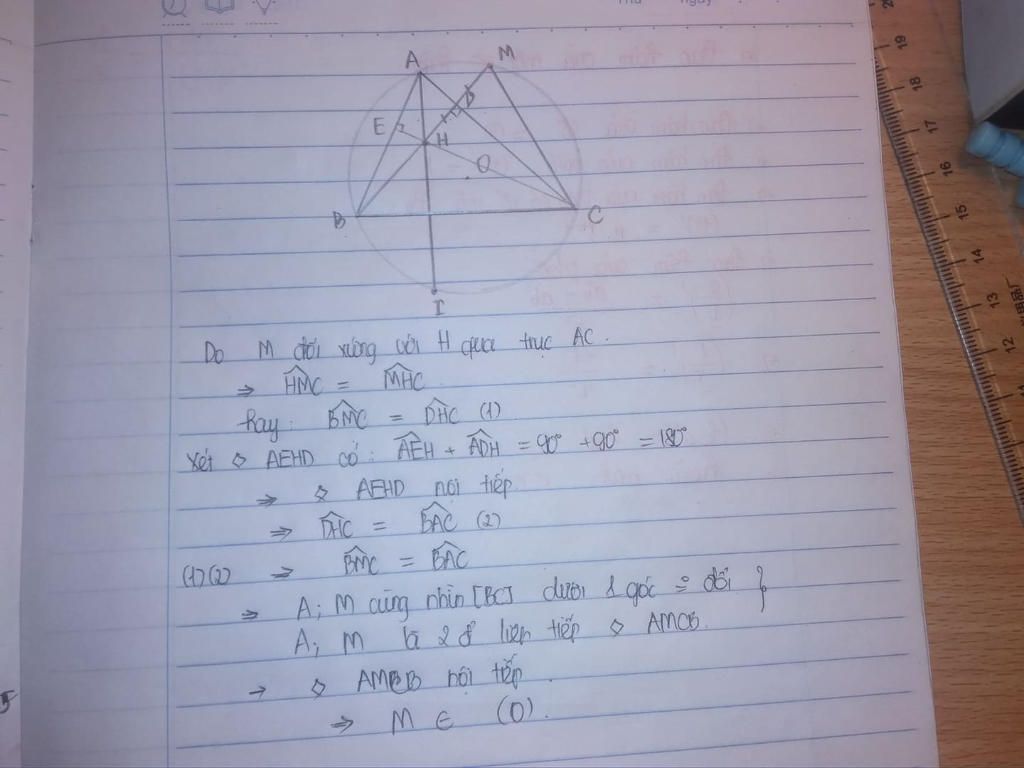 A
M
E
D
H
O
B
C
I
Do M đối xứng với H qua trục AC.
⇒ HMC = MHC
hay: BMC = DHC (1)
Xét ◇ AEHD có: AEH + ADH = 90° + 90° = 180°
⇒ ◇ AEHD nội tiếp
⇒ DHC = BAC (2)
(1)(2) ⇒ BMC = BAC
⇒ A; M cùng nhìn [BC] dưới 1 góc = đổi }
A; M là 2 đ' liên tiếp ◇ AMCB.
→ ◇ AMCB nội tiếp.
⇒ M ∈ (O).
19
18
17
16
15
14
13
12